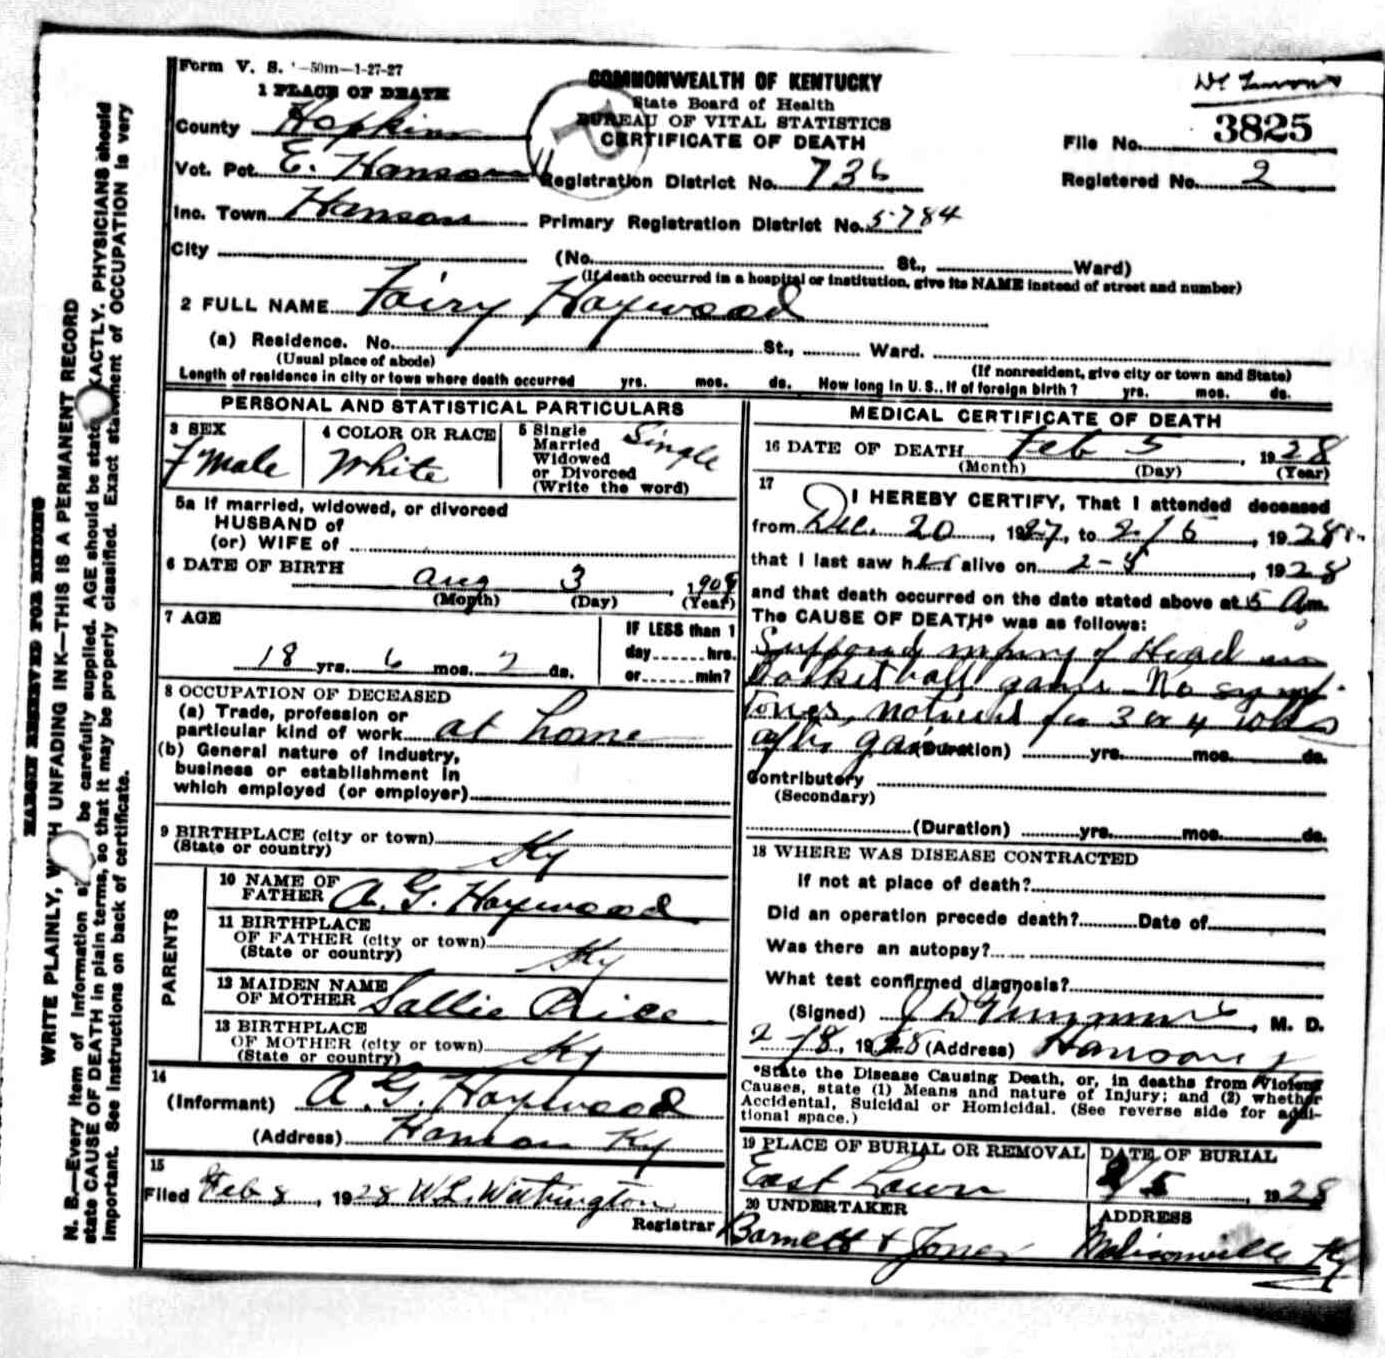 Form V. S. -50m-1-27-27
COMMONWEALTH OF KENTUCKY
State Board of Health
BUREAU OF VITAL STATISTICS
CERTIFICATE OF DEATH
1 PLACE OF DEATH
County Hopkins
File No. 3825
Vot. Pct. E. Hanson
Registration District No. 736
Registered No. 2
Inc. Town Hanson
Primary Registration District No. 5784
City (No. St., Ward)
(If death occurred in a hospital or institution, give its NAME instead of street and number)
2 FULL NAME Fairy Haywood
(a) Residence. No. St., Ward.
(Usual place of abode) (If nonresident, give city or town and State)
Length of residence in city or town where death occurred yrs. mos. ds. How long in U. S., if of foreign birth? yrs. mos. ds.
PERSONAL AND STATISTICAL PARTICULARS
3 SEX
F male
4 COLOR OR RACE
White
5 Single
Married
Widowed
or Divorced
(Write the word)
Single
5a If married, widowed, or divorced
HUSBAND of
(or) WIFE of
6 DATE OF BIRTH
Aug 3, 1909
(Month) (Day) (Year)
7 AGE
18 yrs. 6 mos. 2 ds.
IF LESS than 1
day hrs.
or min?
8 OCCUPATION OF DECEASED
(a) Trade, profession or
particular kind of work at home
(b) General nature of Industry,
business or establishment in
which employed (or employer)
9 BIRTHPLACE (city or town)
(State or country) Ky
PARENTS
10 NAME OF
FATHER A. G. Haywood
11 BIRTHPLACE
OF FATHER (city or town)
(State or country) Ky
12 MAIDEN NAME
OF MOTHER Sallie Price
13 BIRTHPLACE
OF MOTHER (city or town)
(State or country) Ky
14
(Informant) A G. Haywood
(Address) Hanson Ky
15
Filed Feb 8, 1928 W L. Withington
Registrar
MEDICAL CERTIFICATE OF DEATH
16 DATE OF DEATH Feb 5, 1928
(Month) (Day) (Year)
17
I HEREBY CERTIFY, That I attended deceased
from Dec. 20, 1927, to 2/5, 1928
that I last saw her alive on 2-5, 1928
and that death occurred on the date stated above at 5 A m.
The CAUSE OF DEATH* was as follows:
Supposed injury of Head in
Basketball game No symp
toms, noticed for 3 or 4 weeks
after game (Duration) yrs. mos. ds.
Contributory
(Secondary)
(Duration) yrs. mos. ds.
18 WHERE WAS DISEASE CONTRACTED
If not at place of death?
Did an operation precede death? Date of
Was there an autopsy?
What test confirmed diagnosis?
(Signed) J D , M. D.
2-/8, 1928 (Address) Hanson
*State the Disease Causing Death, or, in deaths from Violent
Causes, state (1) Means and nature of Injury; and (2) whether
Accidental, Suicidal or Homicidal. (See reverse side for addi-
tional space.)
19 PLACE OF BURIAL OR REMOVAL
East Lawn
DATE OF BURIAL
2/5, 1928
20 UNDERTAKER
Barnett & Jones
ADDRESS
Madisonville Ky
MARGIN RESERVED FOR BINDING
WRITE PLAINLY, WITH UNFADING INK—THIS IS A PERMANENT RECORD
N. B.—Every item of information s be carefully supplied. AGE should be state EXACTLY. PHYSICIANS should
state CAUSE OF DEATH in plain terms, so that it may be properly classified. Exact statement of OCCUPATION is very
important. See instructions on back of certificate.